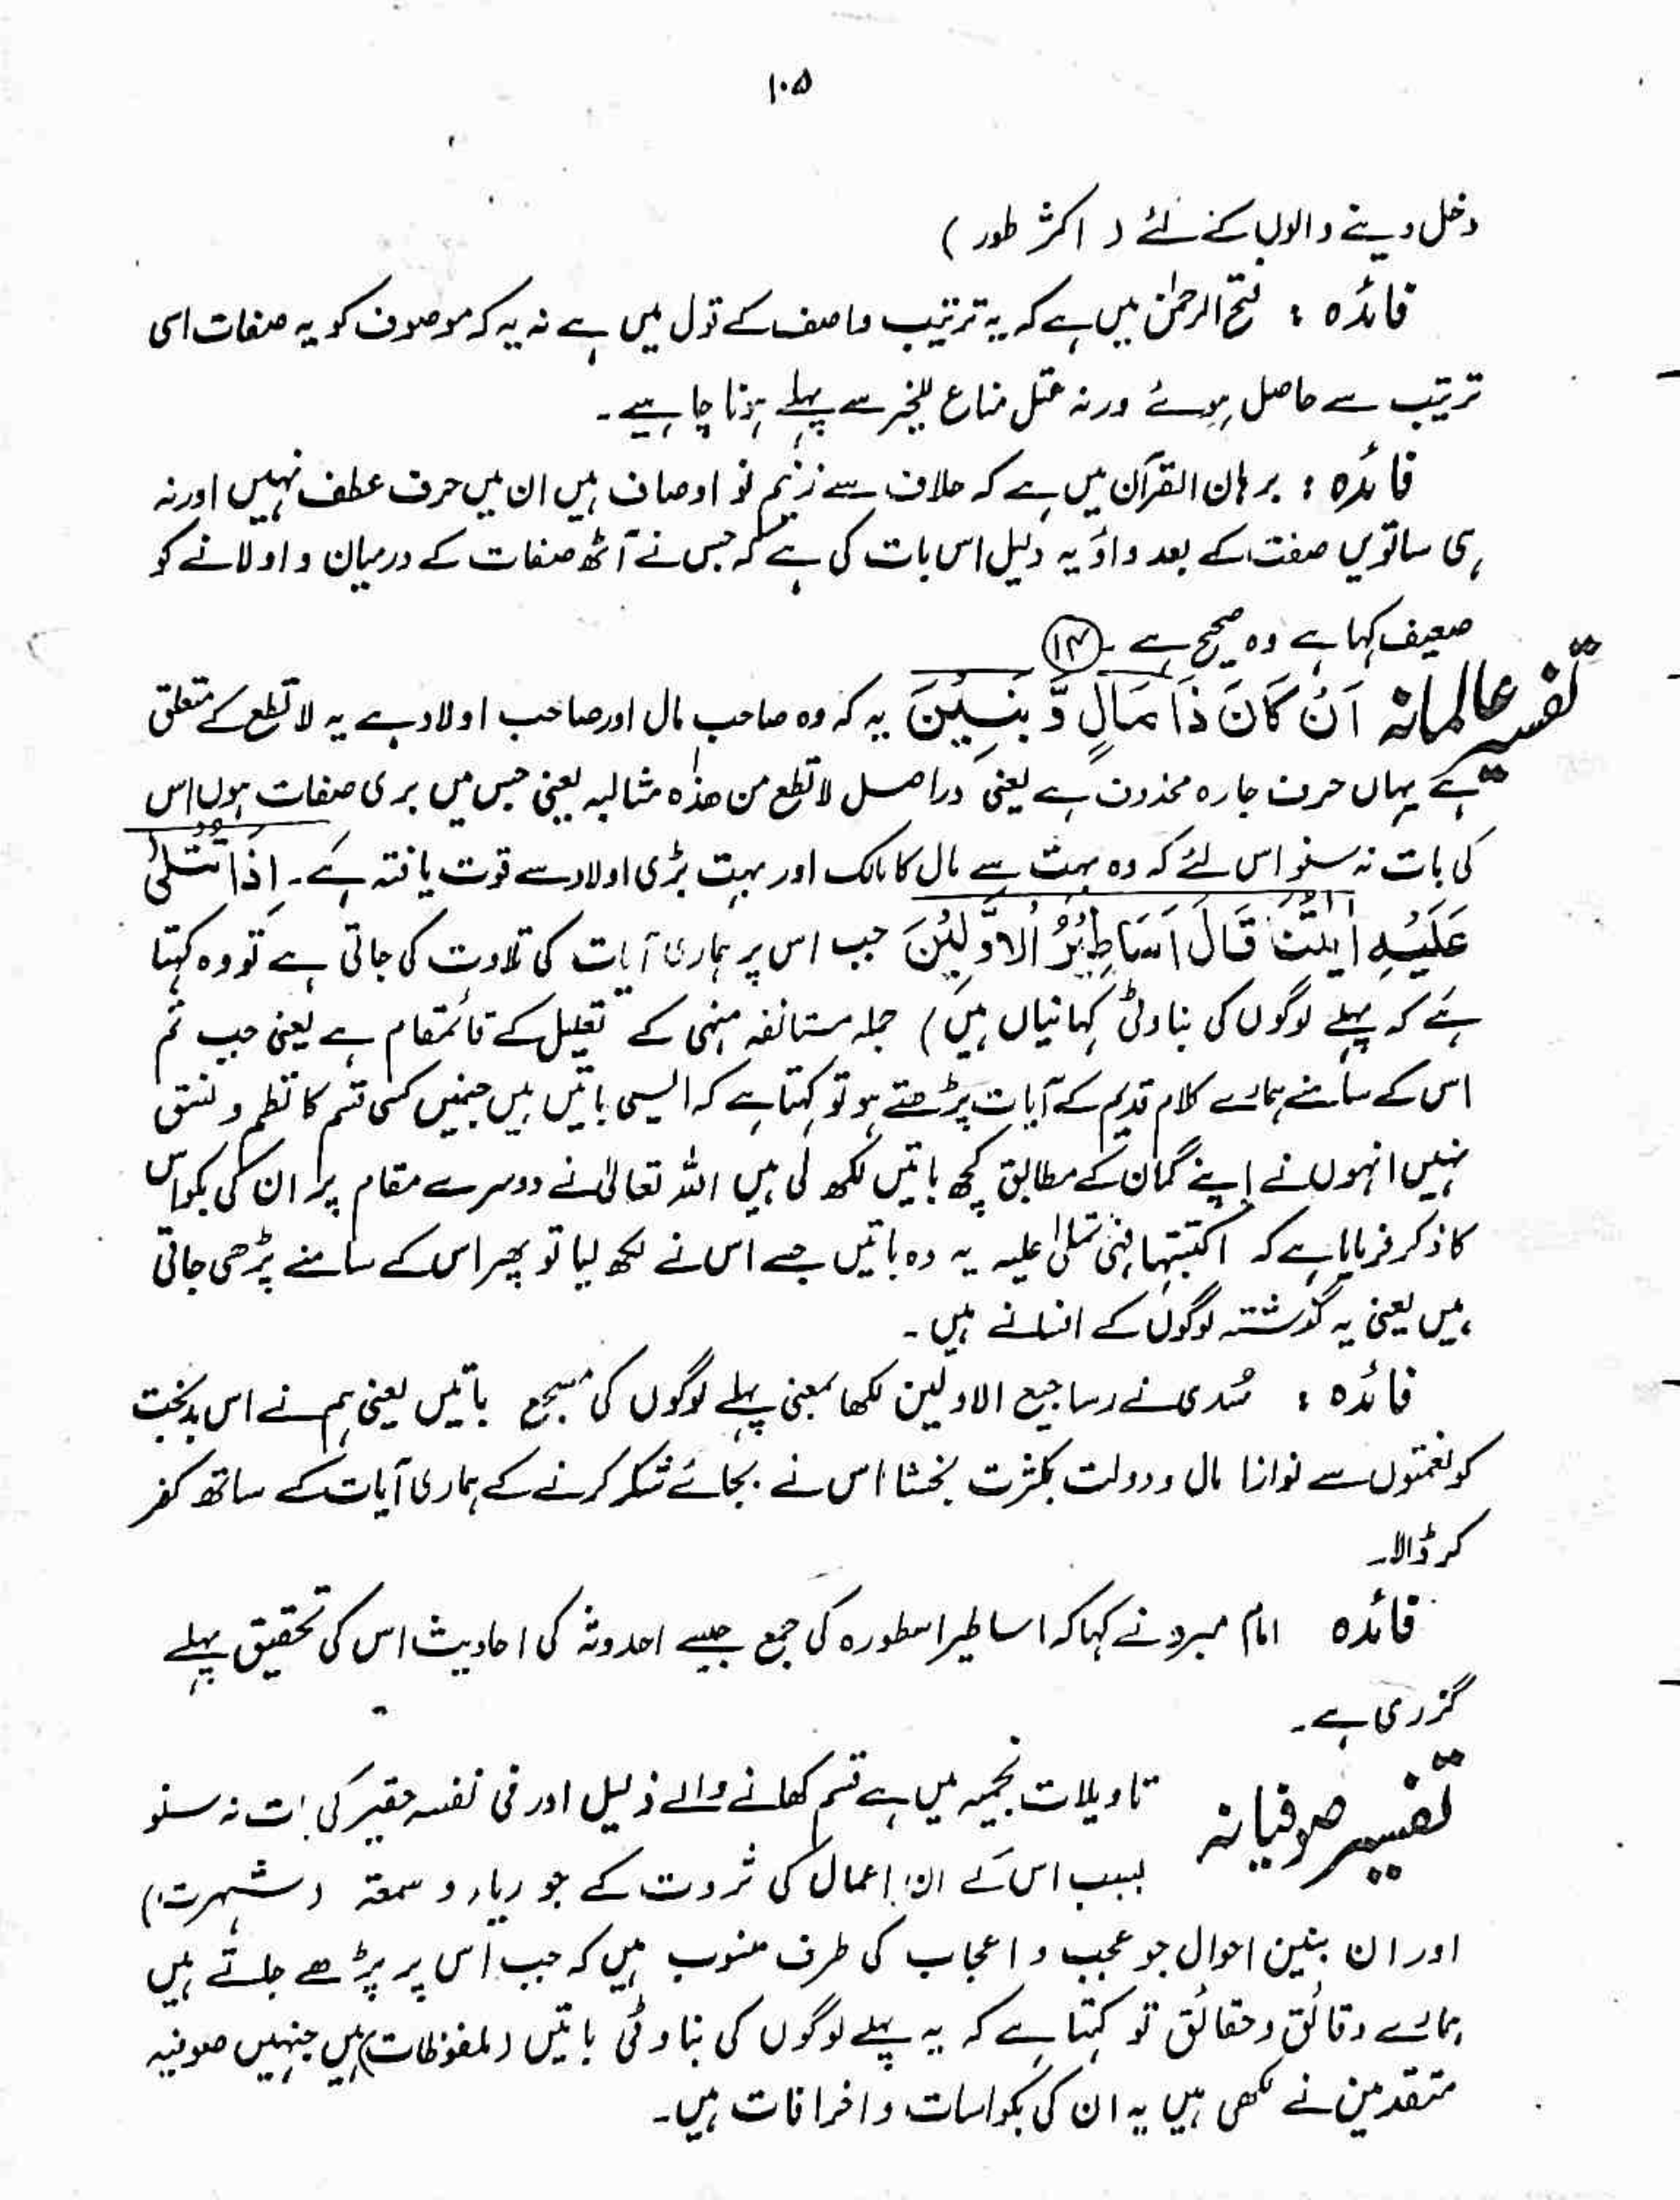 ۱۰۵
دخل دینے والوں کے لئے ( اکثر طور )
فائدہ : فتح الرحمٰن میں ہے کہ یہ ترتیب واصف کے قول میں ہے نہ یہ کہ موصوف کو یہ صفات اسی
ترتیب سے حاصل ہوئے ورنہ عتل مناع للخیر سے پہلے ہونا چاہیے ۔
فائدہ : برہان القرآن میں ہے کہ حلاف سے زنیم نو اوصاف ہیں ان میں حرف عطف نہیں اور نہ
ہی ساتویں صفت کے بعد واؤ یہ دلیل اس بات کی ہے کہ جس نے آٹھ صفات کے درمیان واو لانے کو
ضعیف کہا ہے وہ صحیح ہے ۔ ۱۳
تفسیر عالمانہ اَنْ كَانَ ذَا مَالٍ وَّ بَنِيْنَ یہ کہ وہ صاحب مال اور صاحب اولاد ہے یہ لا تطع کے متعلق
ہے یہاں حرف جارہ محذوف ہے یعنی دراصل لا تطع من ھذہ مثالبہ یعنی جس میں بری صفات ہوں اس
کی بات نہ سنو اس لئے کہ وہ بہت سے مال کا مالک اور بہت بڑی اولاد سے قوت یافتہ ہے ۔ اِذَا تُتْلٰى
عَلَيْهِ اٰيٰتُنَا قَالَ اَسَاطِيْرُ الْاَوَّلِيْنَ جب اس پر ہماری آیات کی تلاوت کی جاتی ہے تو وہ کہتا
ہے کہ پہلے لوگوں کی بناوٹی کہانیاں ہیں ) جملہ مستانفہ منہی کے تعلیل کے قائمقام ہے یعنی جب تم
اس کے سامنے ہمارے کلام قدیم کے آیات پڑھتے ہو تو کہتا ہے کہ ایسی باتیں ہیں جنہیں کسی قسم کا نظم و نسق
نہیں انہوں نے اپنے گمان کے مطابق کچھ باتیں لکھ لی ہیں اللہ تعالیٰ نے دوسرے مقام پر ان کی بکواس
کا ذکر فرمایا ہے کہ اکتتبہا فہی تملیٰ علیہ یہ وہ باتیں جسے اس نے لکھ لیا تو پھر اس کے سامنے پڑھی جاتی
ہیں یعنی یہ گذشتہ لوگوں کے افسانے ہیں ۔
فائدہ : سُدی نے اساجیع الاولین لکھا بمعنی پہلے لوگوں کی مسجع باتیں یعنی ہم نے اس بدبخت
کو نعمتوں سے نوازا مال و دولت بکثرت بخشا اس نے بجائے شکر کرنے کے ہماری آیات کے ساتھ کفر
کر ڈالا۔
فائدہ امام مبرد نے کہا کہ اساطیر اسطورہ کی جمع جیسے احدوثہ کی احادیث اس کی تحقیق پہلے
گزری ہے۔
تفسیر صوفیانہ تاویلات نجمیہ میں ہے قسم کھانے والے ذلیل اور فی نفسہ حقیر کی بات نہ سنو
بسبب اس کے ان اعمال کی ثروت کے جو ریاء و سمعۃ ( شہرت )
اور ان بنین احوال جو عجب و اعجاب کی طرف منسوب ہیں کہ جب اس پر پڑھے جاتے ہیں
ہمارے دقائق و حقائق تو کہتا ہے کہ یہ پہلے لوگوں کی بناوٹی باتیں (ملفوظات) ہیں جنہیں صوفیہ
متقدمین نے لکھی ہیں یہ ان کی بکواسات و اخرافات ہیں۔